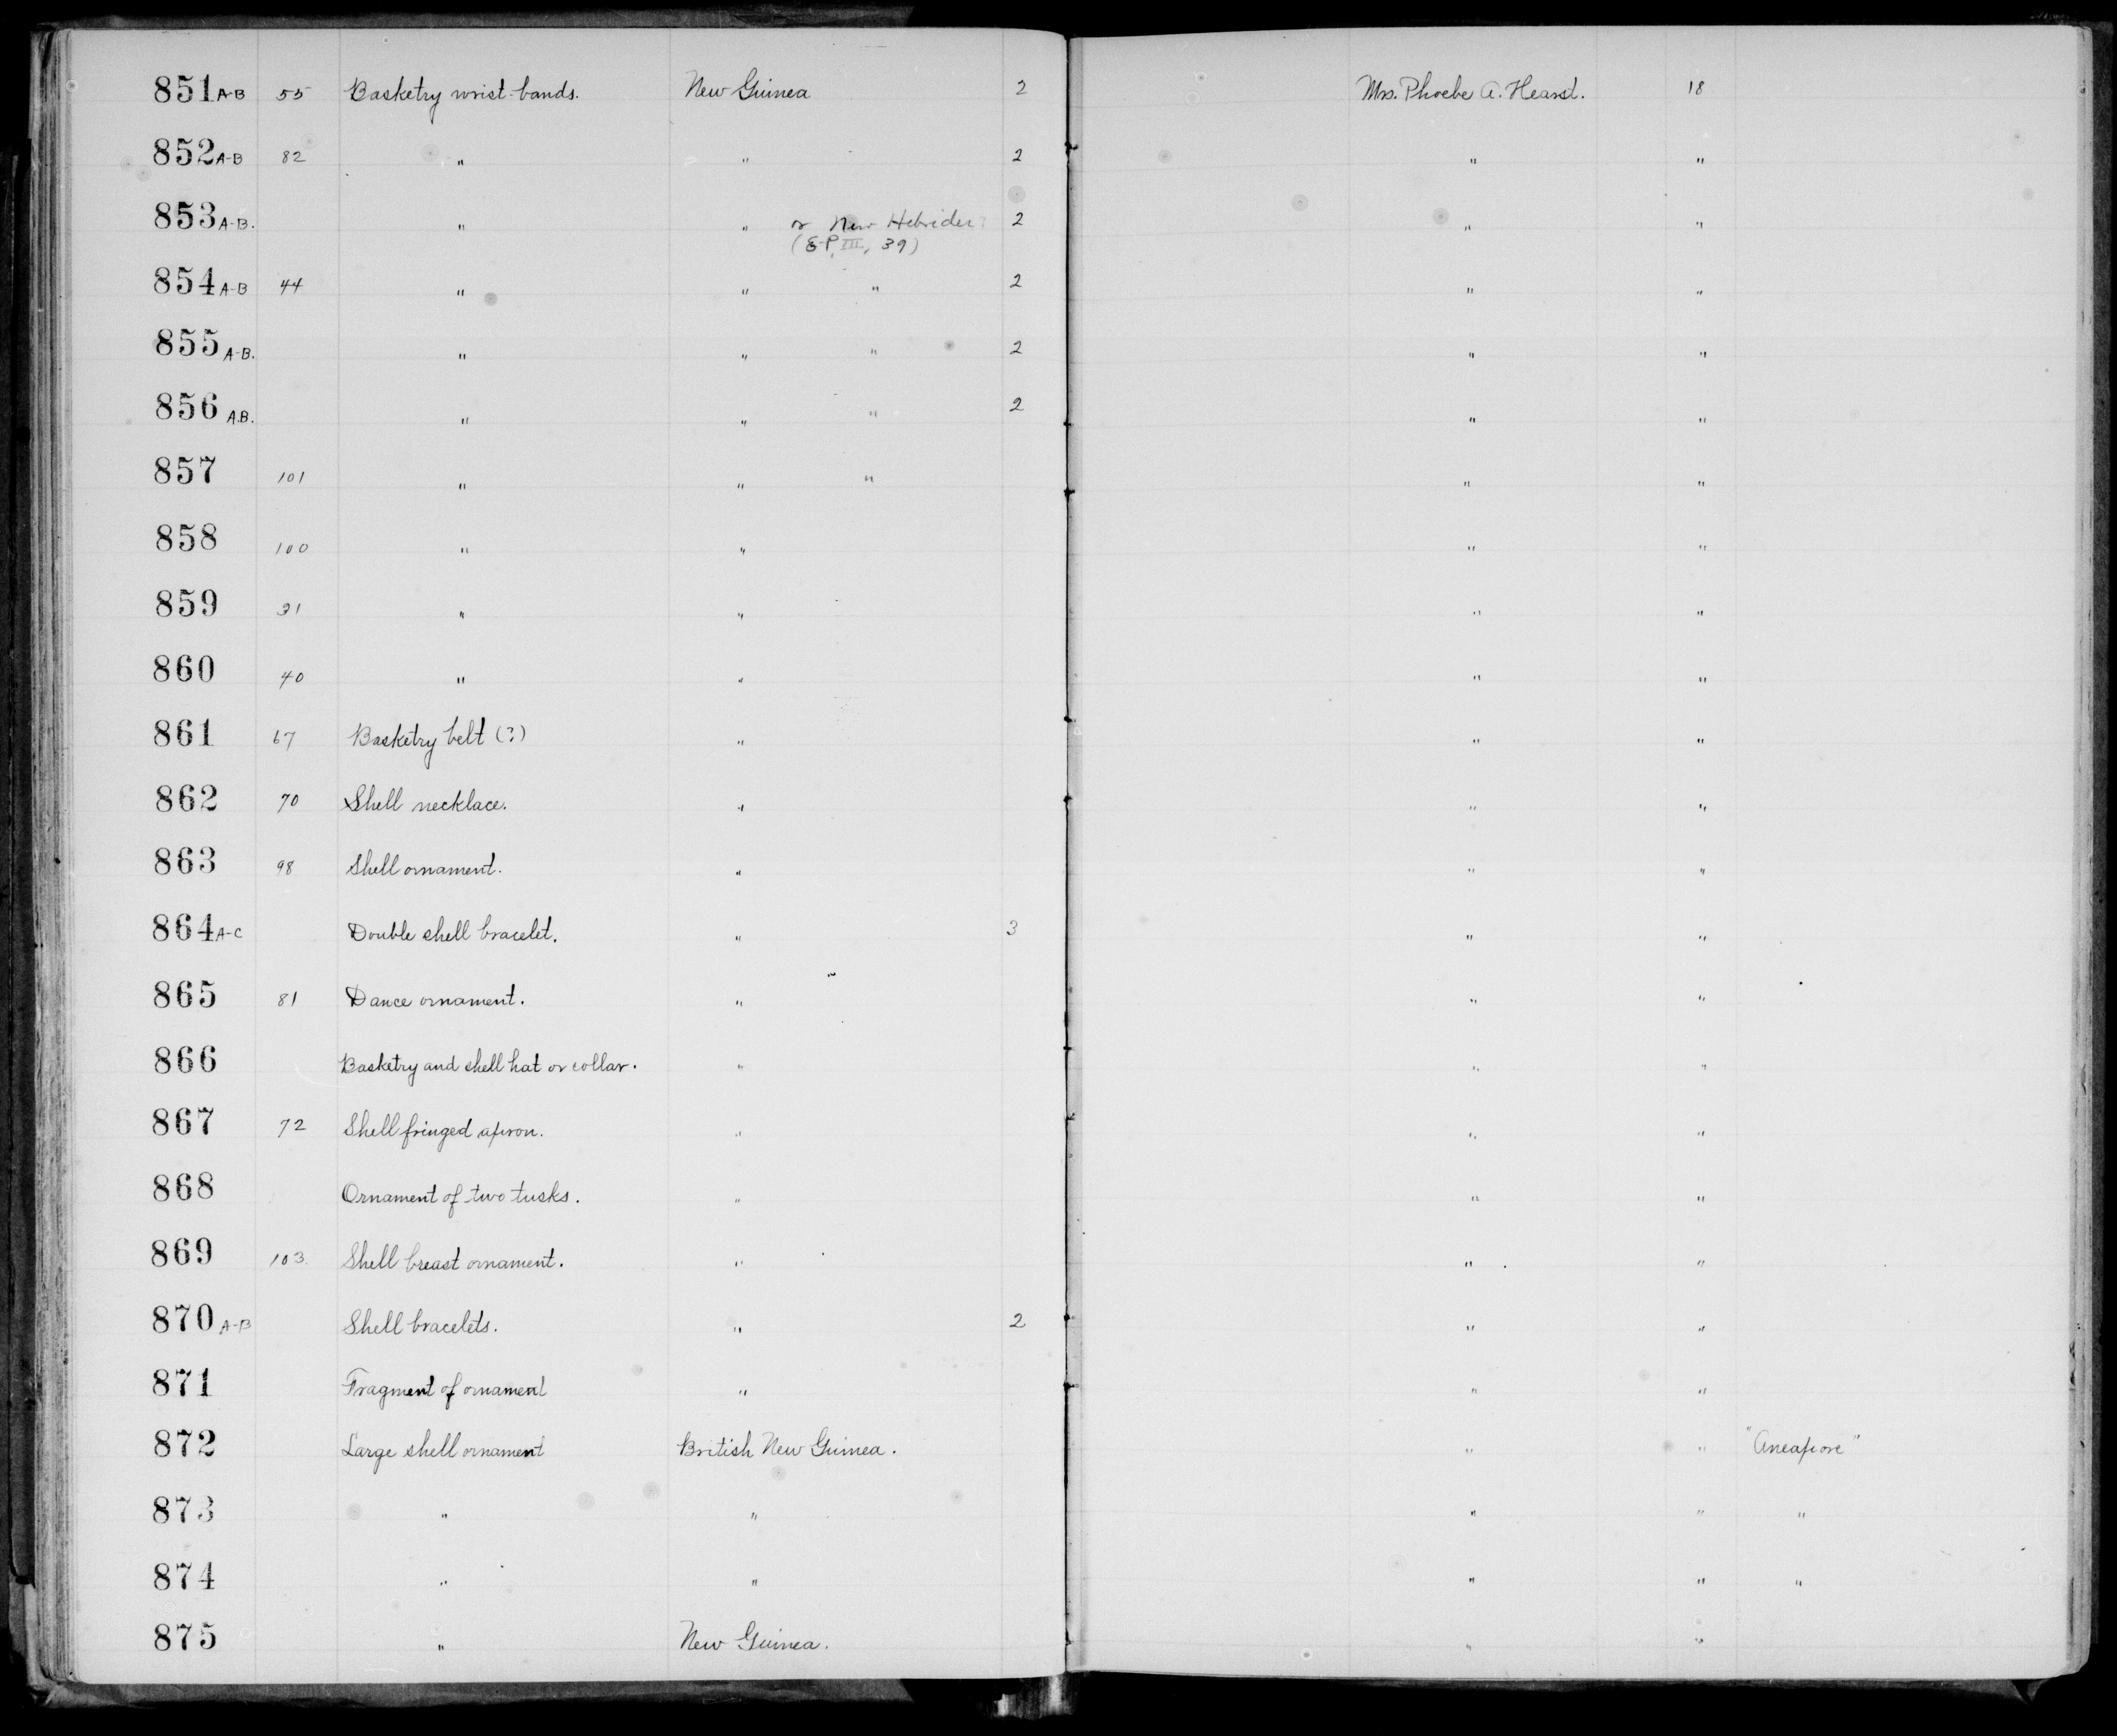 851 A-B 55 Basketry wrist-bands. New Guinea 2 Mrs. Phoebe A. Hearst. 18
852 A-B 82 " " 2 " "
853 A-B. " " or New Hebrides 2 " "
(E-P, III, 39)
854 A-B 44 " " " 2 " "
855 A-B. " " " 2 " "
856 A.B. " " " 2 " "
857 101 " " " " "
858 100 " " " "
859 31 " " " "
860 40 " " " "
861 67 Basketry belt (?) " " "
862 70 Shell necklace. " " "
863 98 Shell ornament. " " "
864 A-C Double shell bracelet. " 3 " "
865 81 Dance ornament. " " "
866 Basketry and shell hat or collar. " " "
867 72 Shell fringed apron. " " "
868 Ornament of two tusks. " " "
869 103. Shell breast ornament. " " "
870 A-B Shell bracelets. " 2 " "
871 Fragment of ornament " " "
872 Large shell ornament British New Guinea. " " "Aneapore"
873 " " " " "
874 " " " " "
875 " New Guinea. " "